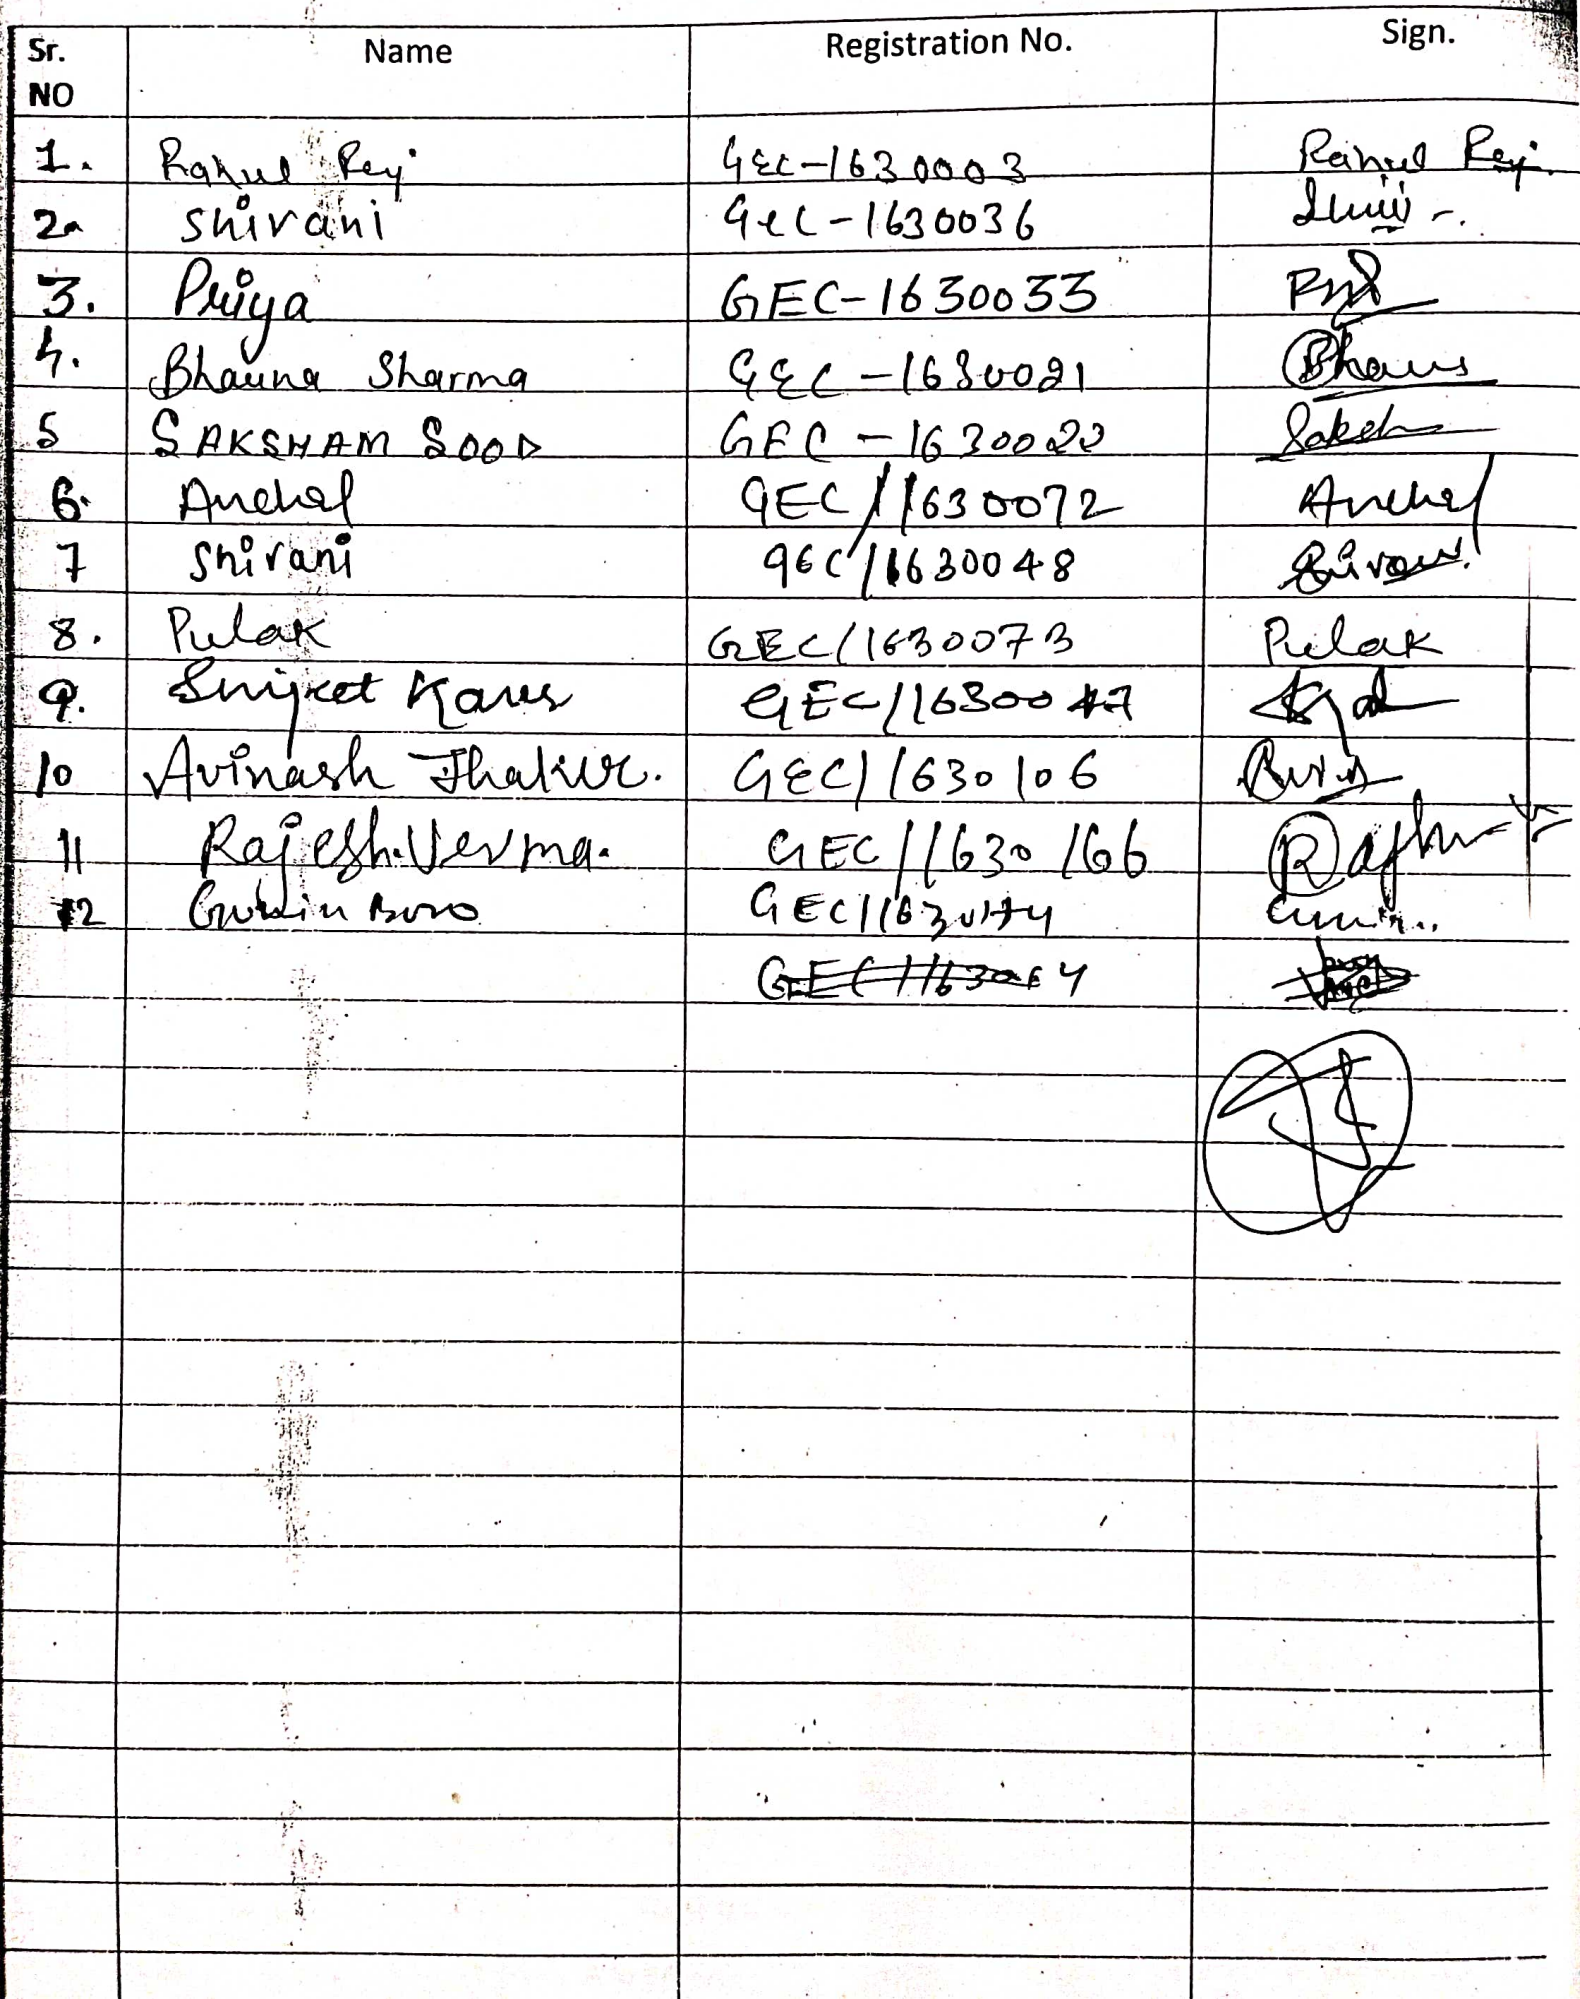 Sr. NO Name Registration No. Sign.
1. Rahul Rey GEC-1630003 Rahul Rey.
2. Shivani GEC-1630036
3. Priya GEC-1630033
4. Bhauna Sharma GEC-1630021 Bhauna
5 SAKSHAM SOOD GEC-1630020 Saksh
6. Anchal GEC/1630072 Anchal
7 Shivani GEC/1630048 Shivani
8. Pulak GEC/1630073 Pulak
9. Kaur GEC/1630047
10 Avinash Thakur. GEC/1630106
11 Rajesh Verma. GEC/1630166
12 Boro GEC/1630174